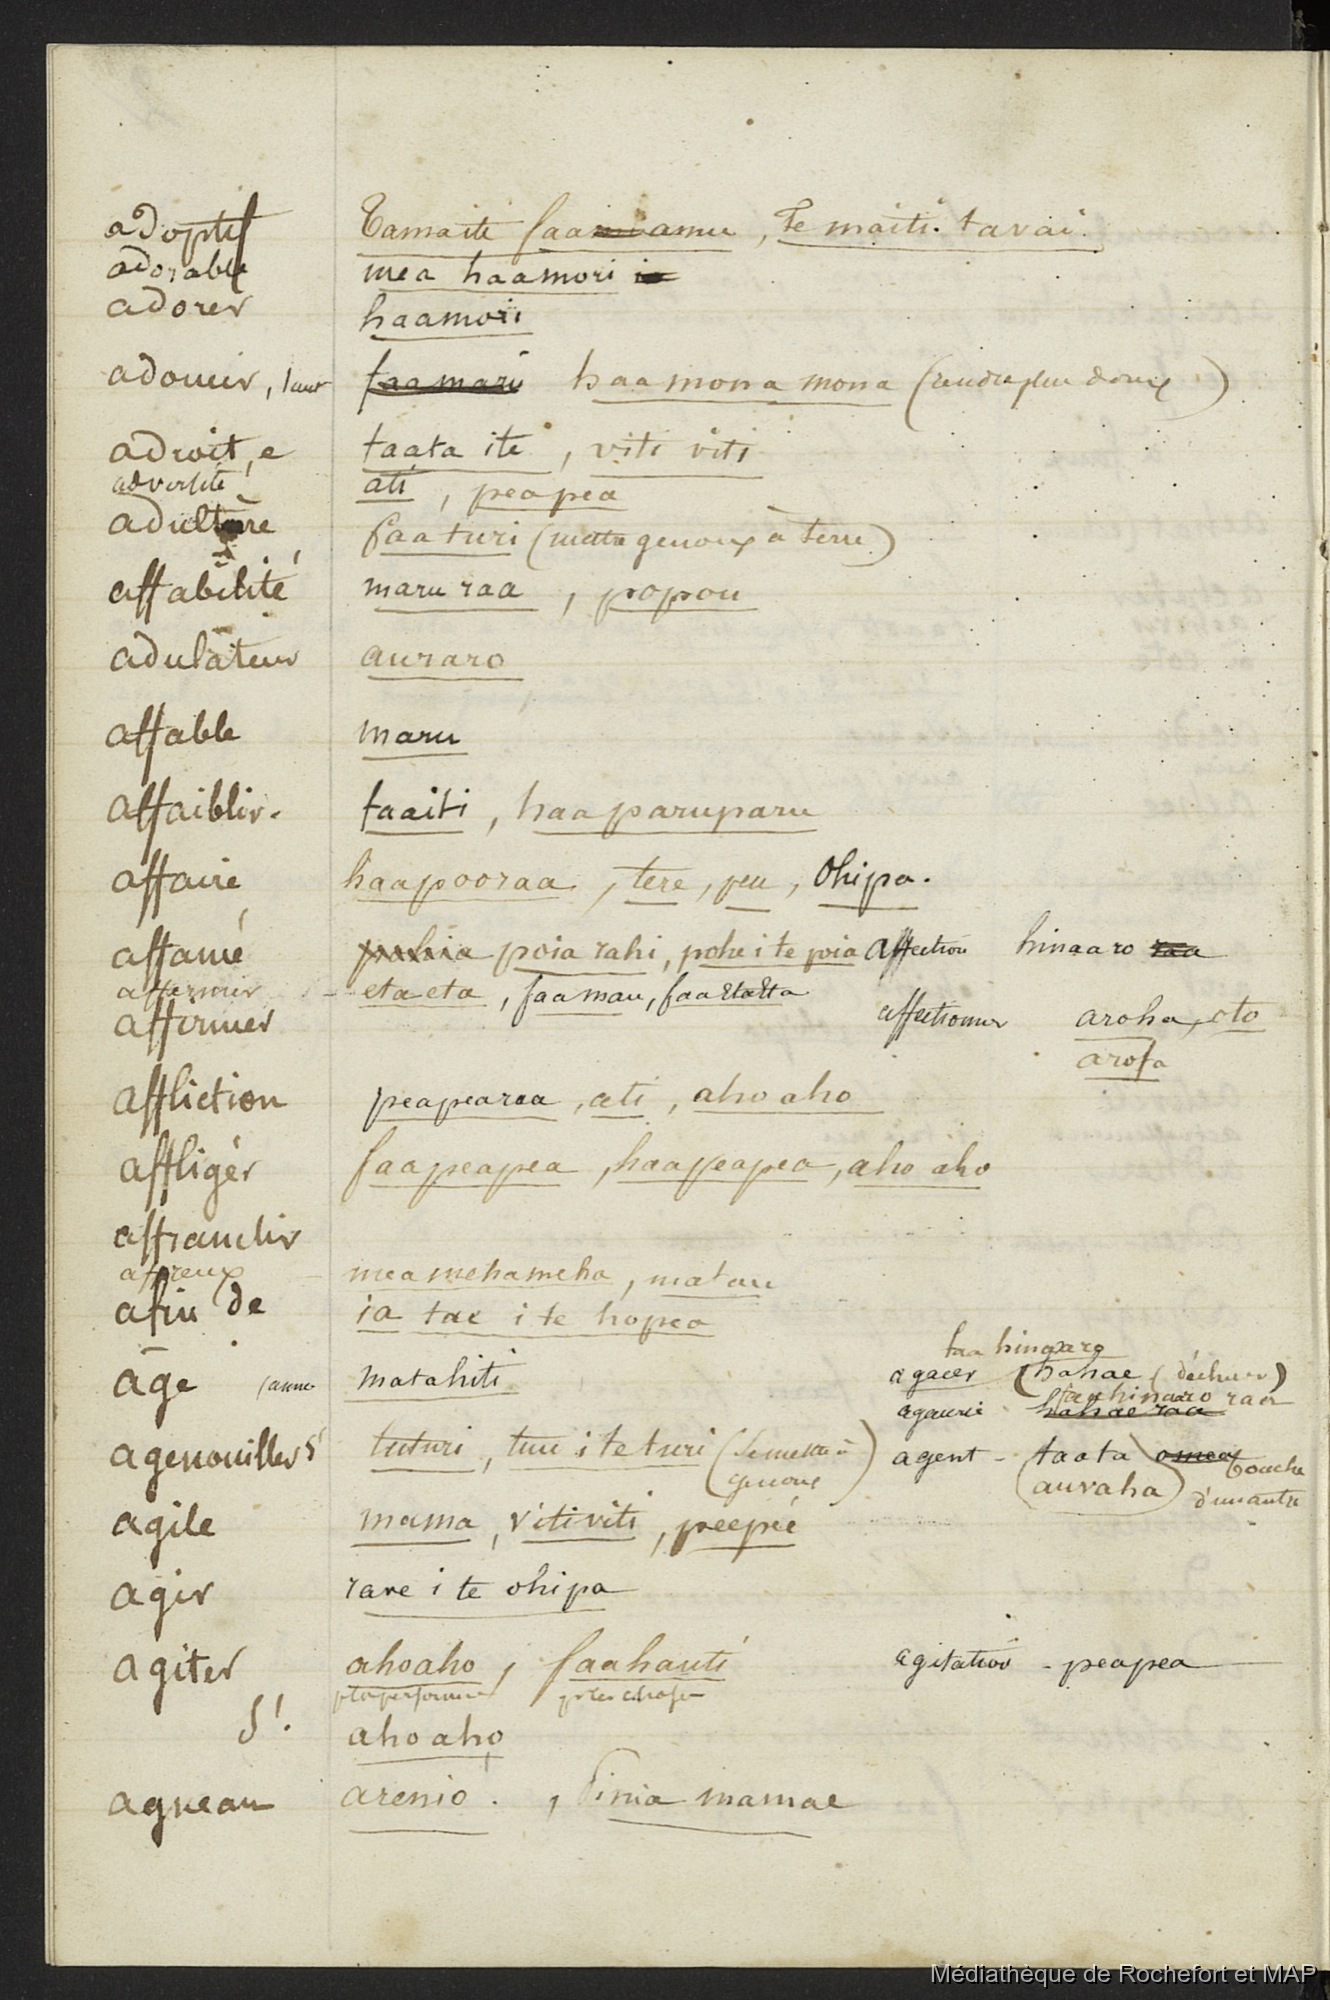 adoptif Tamaiti faaamu, Te maiti. tavai.
adorable mea haamori
adorer haamori
adoucir, faamaru haamona mona (rendre plus doux)
adroit, e taata ite, viti viti
adversité ati, peapea
adultère faaturi (mettre genoux à terre)
affabilité maru raa, popou
adulateur auraro
affable maru
affaiblir. faaiti, haaparuparu
affaire haapooraa, tere, peu, Ohipa.
affamé pohia poia rahi, pohe i te poia affection hinaaro raa
affermir etaeta, faamau, faaetaeta
affirmer affectionner aroha, oto
arofa
affliction peapearaa, ati, aho aho
affliger faapeapea, haapeapea, aho aho
affranchir
affreux mea mehameha, matau
afin de ia tae i te hopea
taa hinaaro
âge matahiti agacer (hahae (déchirer)
agacerie hahae raa
agenouiller s' tuturi, tuu i te turi (se mettre à genoux) agent - (taata auvaha) bouche d'un autre
agile mama, vitiviti, peepee
agir rave i te ohipa
agiter ahoaho, faahauti agitation - peapea
S'. ahoaho
agneau arenio. , Finia mamae
Médiathèque de Rochefort et MAP